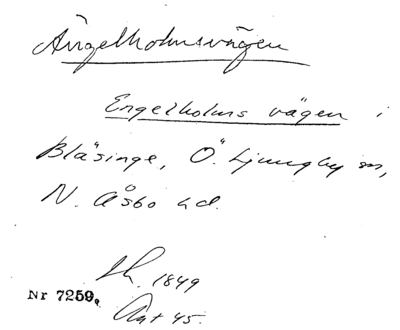 Ängelholmsvägen
Engelholms vägen i
Bläsinge, Ö. Ljungby sn,
N. Åsbo hd.
1849
Nr 7259.
Akt 45.